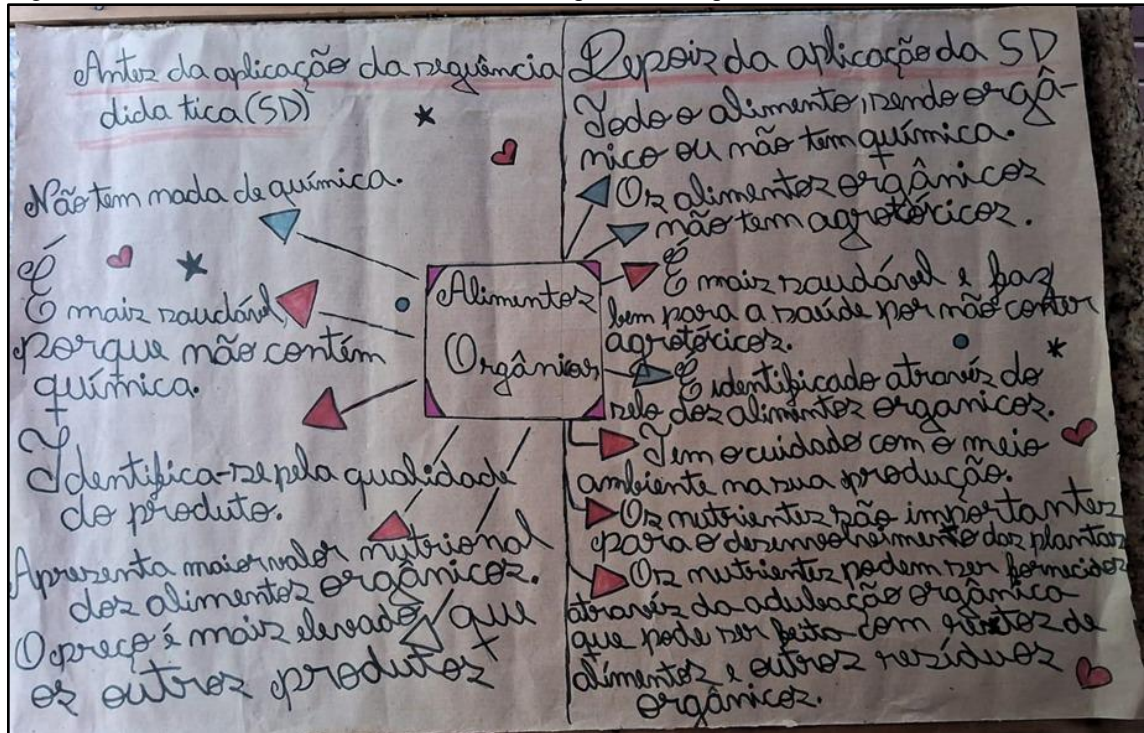 Antes da aplicação da sequência
didática (SD)
Não tem nada de química.
É
É mais saudável,
porque não contém
química.
Identifica-se pela qualidade
do produto.
Apresenta maior valor nutrional
dos alimentos orgânicos.
O preço é mais elevado que
os outros produtos
Alimentos
Orgânicos
Depois da aplicação da SD
Todo o alimento, sendo orgâ-
nico ou não tem química.
Os alimentos orgânicos
não tem agrotóxicos.
É mais saudável e faz
bem para a saúde por não conter
agrotóxicos.
É identificado através do
selo dos alimentos organicos.
Tem o cuidado com o meio
ambiente na sua produção.
Os nutrientes são importantes
para o desenvolvimento das plantas
Os nutrientes podem ser fornecidos
através da adubação orgânica
que pode ser feita com restos de
alimentos e outros resíduos
orgânicos.